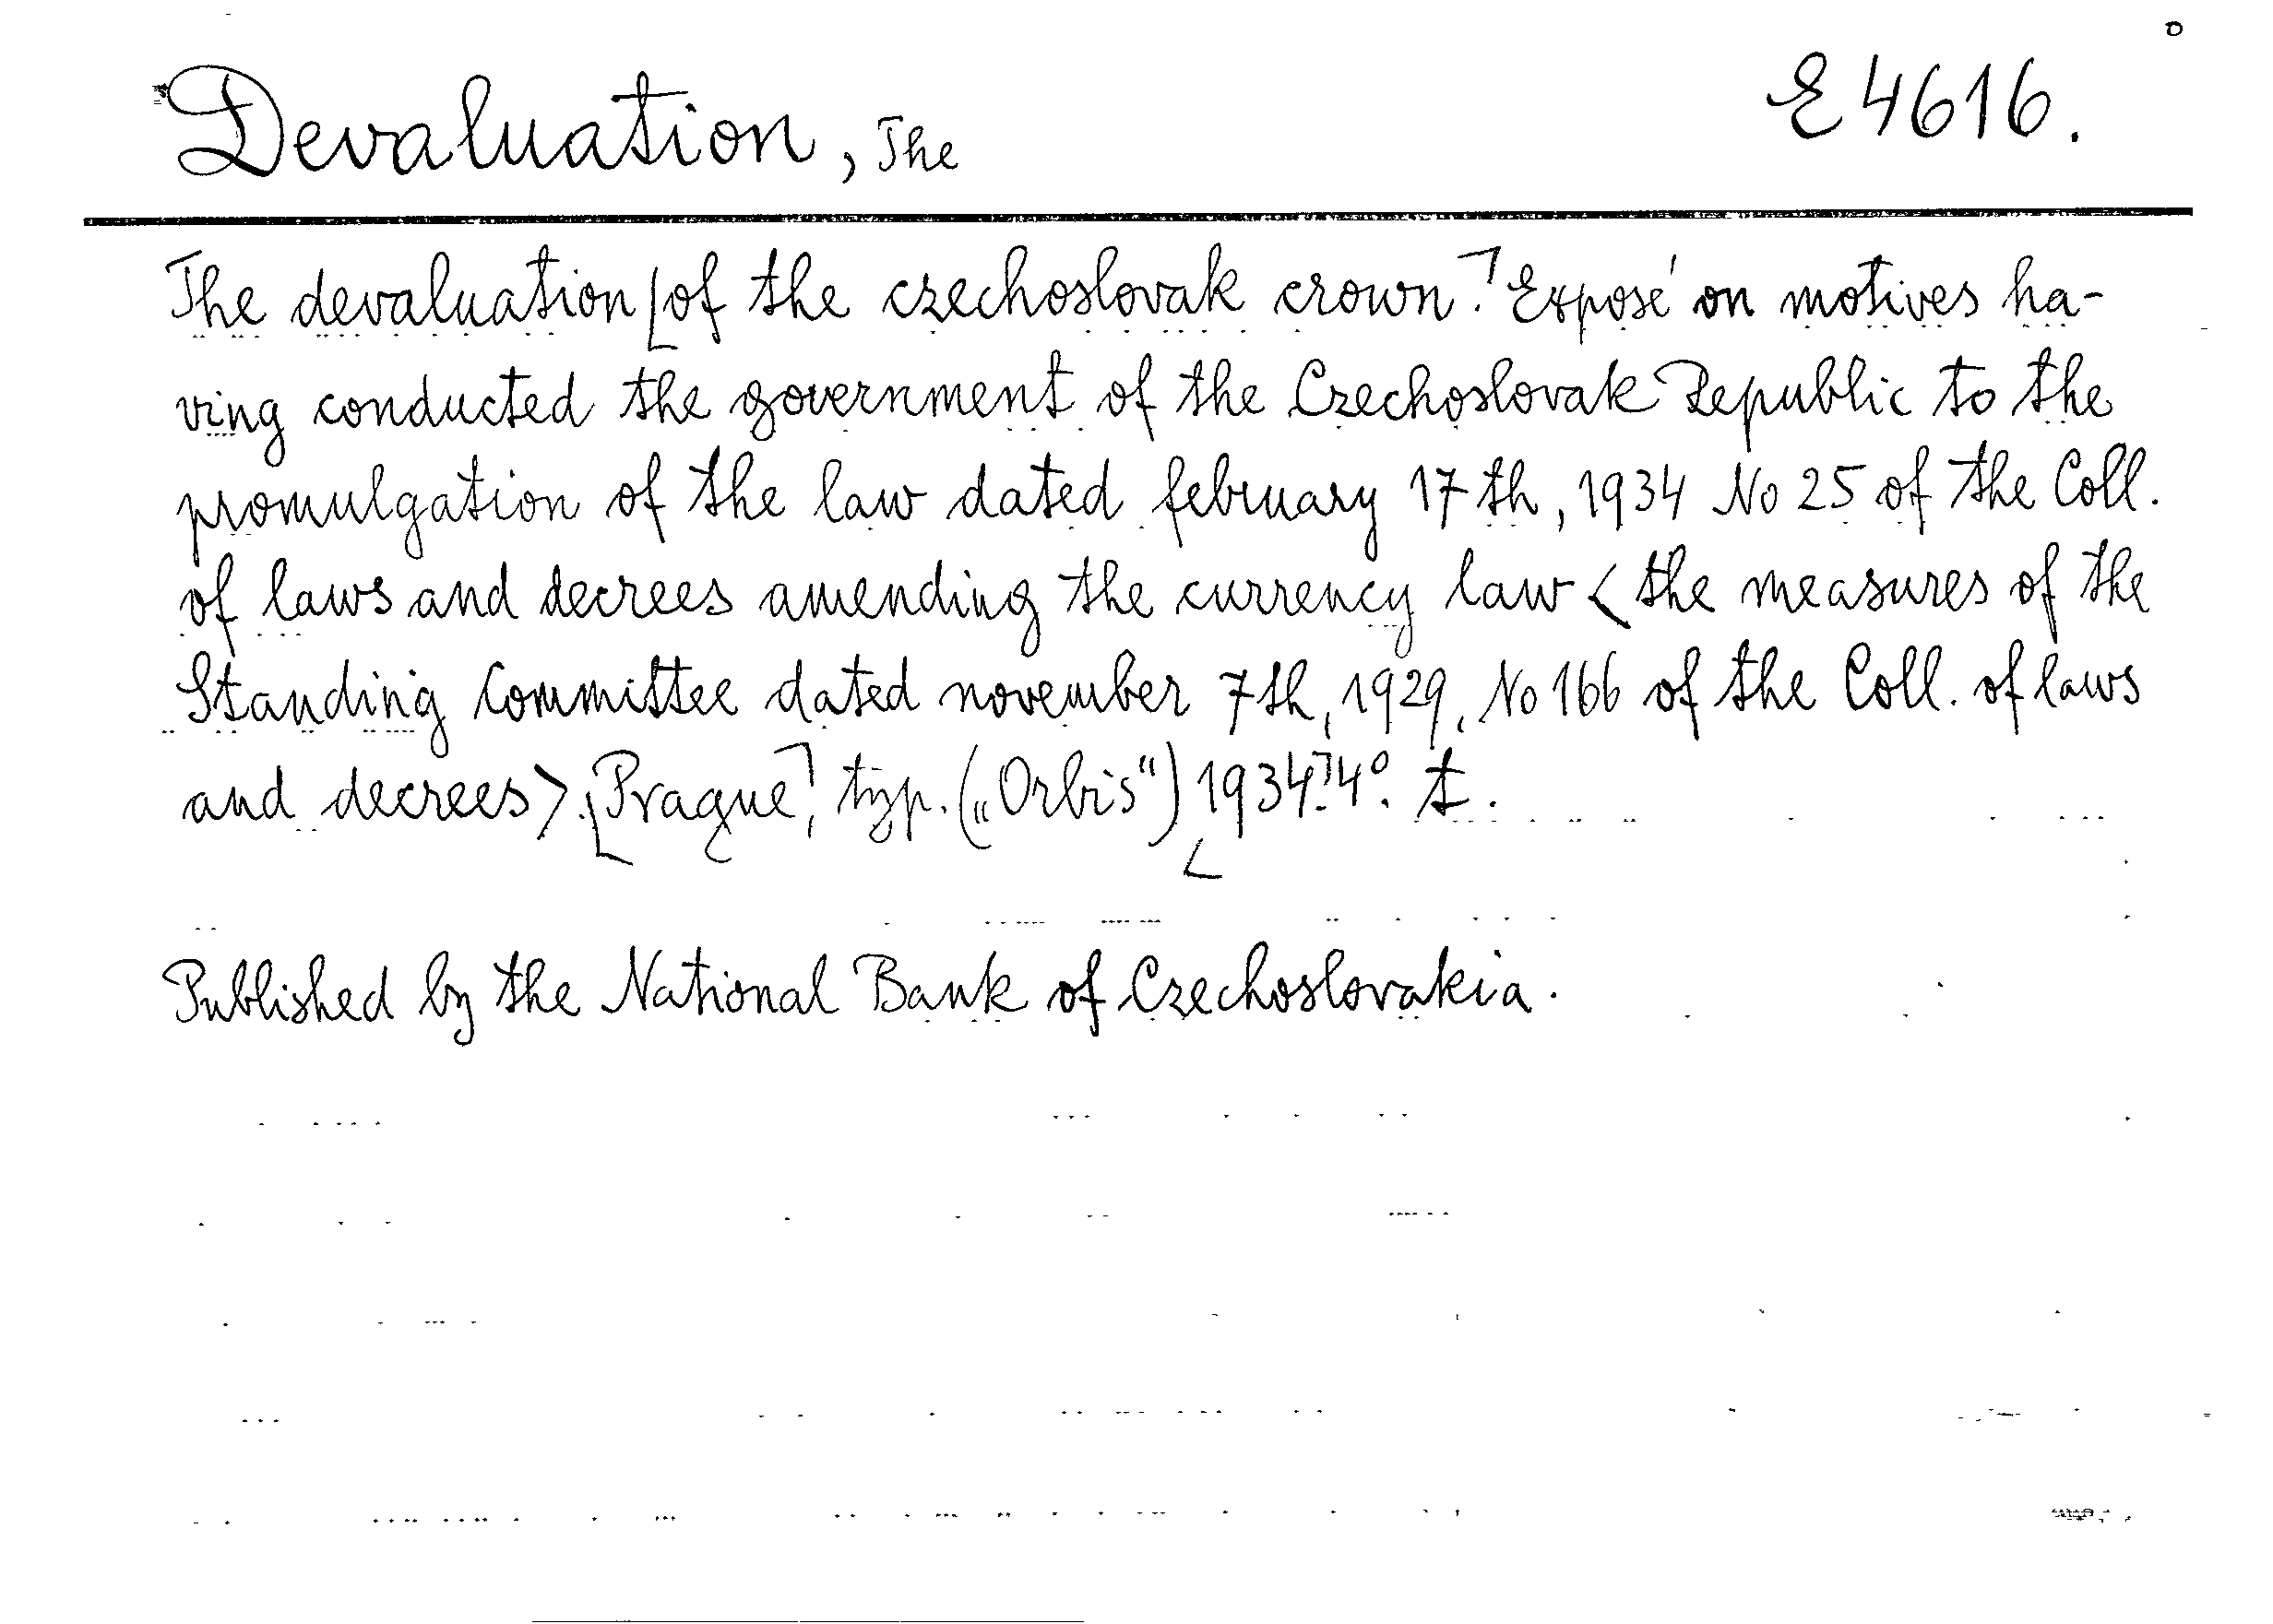 Devaluation, The
E 4616.
The devaluation [of the czechoslovak crown.] Exposé on motives ha-
ving conducted the government of the Czechoslovak Republic to the
promulgation of the law dated february 17th, 1934 No 25 of the Coll.
of laws and decrees amending the currency law <the measures of the
Standing Committee dated november 7th, 1929, No 166 of the Coll. of laws
and decrees>. [Prague], typ. („Orbis“) [1934]. 4°. t.
Published by the National Bank of Czechoslovakia.